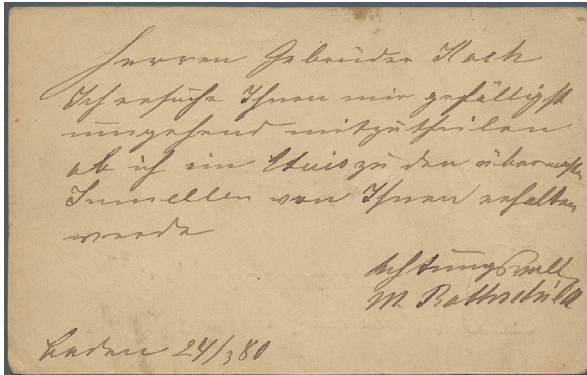 Herren Gebrüder Koch
Ich ersuche Ihnen mir gefälligst
umgehend mitzutheilen
ob ich ein Etuis zu den übersandten
Juwellen von Ihnen erhalten
werde
Achtungsvoll
M. Rothschild
Baden 24/3 80